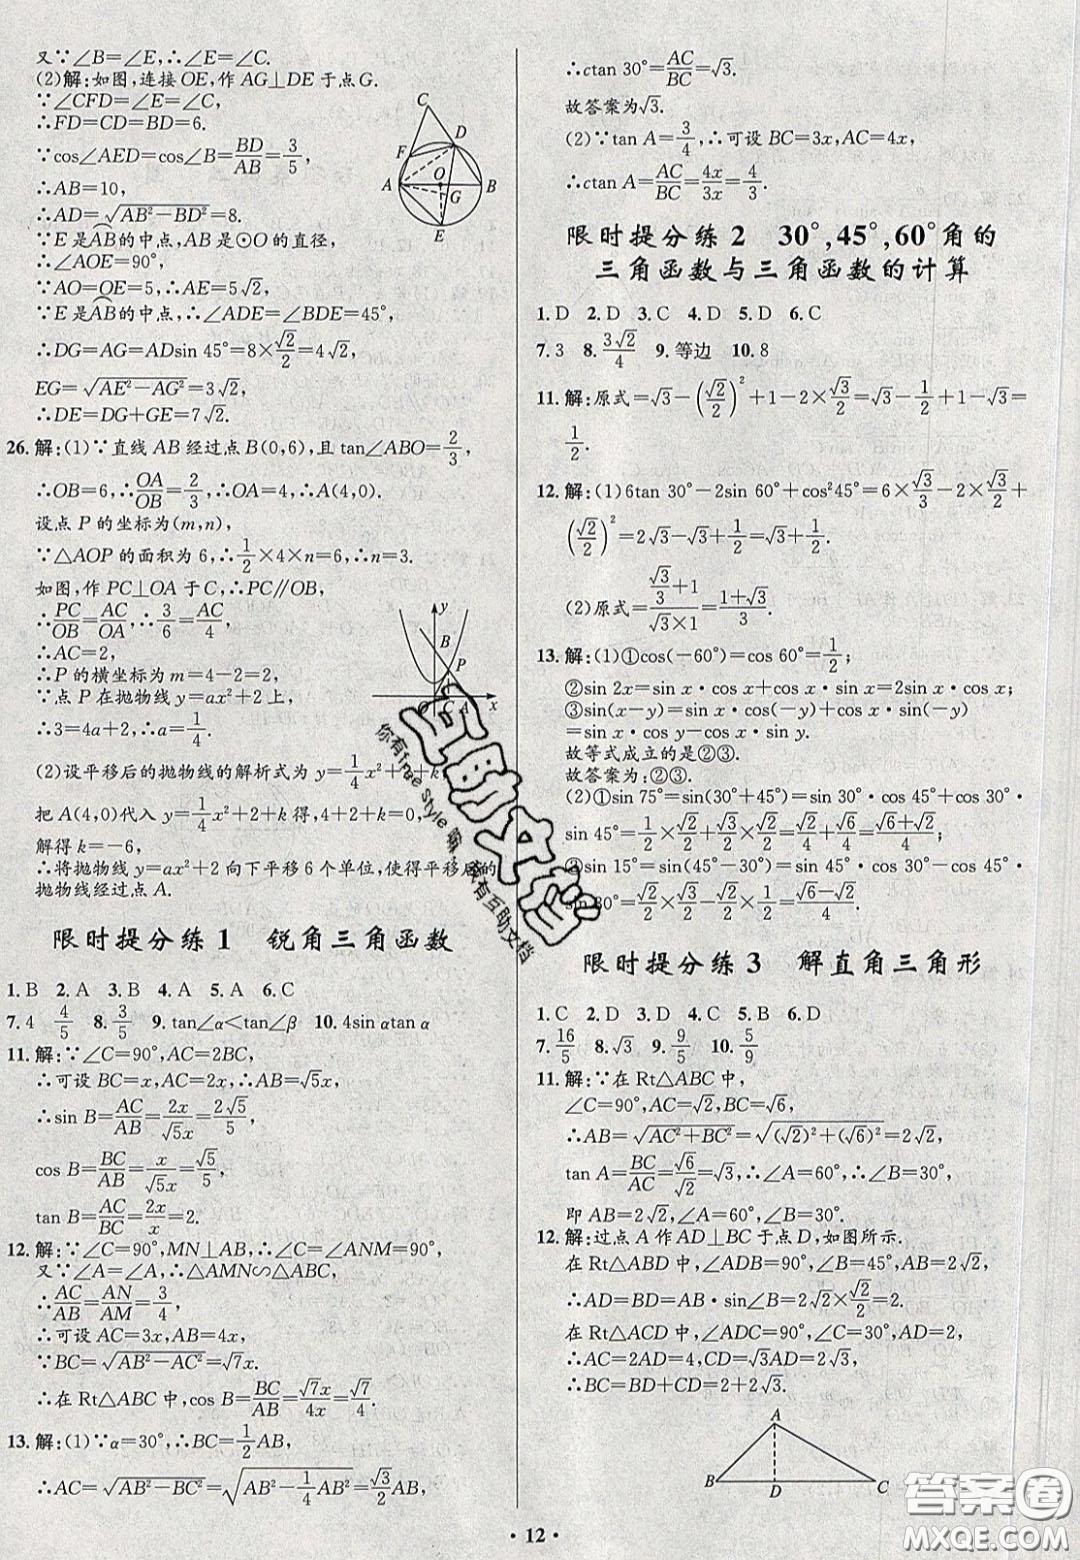 又∵∠B=∠E,∴∠E=∠C.
(2)解:如图,连接OE,作AG⊥DE于点G.
∵∠CFD=∠E=∠C,
∴FD=CD=BD=6.
∵cos∠AED=cos∠B=BD/AB=3/5,
∴AB=10,
∴AD=√(AB²-BD²)=8.
∵E是AB的中点,AB是⊙O的直径,
∴∠AOE=90°,
∵AO=OE=5,∴AE=5√2,
∵E是AB的中点,∴∠ADE=∠BDE=45°,
∴DG=AG=ADsin 45°=8×√2/2=4√2,
EG=√(AE²-AG²)=3√2,
∴DE=DG+GE=7√2.
C
D
F
A
O
B
G
E
26.解:(1)∵直线AB经过点B(0,6),且tan∠ABO=2/3,
∴OB=6,∴OA/OB=2/3,∴OA=4,∴A(4,0).
设点P的坐标为(m,n),
∵△AOP的面积为6,∴1/2×4×n=6,∴n=3.
如图,作PC⊥OA于C,∴PC∥OB,
∴PC/OB=AC/OA,∴3/6=AC/4,
∴AC=2,
∴P的横坐标为m=4-2=2,
∵点P在抛物线y=ax²+2上,
∴3=4a+2,∴a=1/4.
y
B
P
O
C
A
x
(2)设平移后的抛物线的解析式为y=1/4x²+2+k,
把A(4,0)代入y=1/4x²+2+k得,4+2+k=0,
解得k=-6,
∴将抛物线y=ax²+2向下平移6个单位,使得平移后的
抛物线经过点A.
限时提分练1 锐角三角函数
1.B 2.A 3.B 4.A 5.A 6.C
7.4 4/5 8.3/5 9.tan∠α<tan∠β 10.4sin αtan α
11.解:∵∠C=90°,AC=2BC,
∴可设BC=x,AC=2x,∴AB=√5x,
∴sin B=AC/AB=2x/√5x=2√5/5,
cos B=BC/AB=x/√5x=√5/5,
tan B=AC/BC=2x/x=2.
12.解:∵∠C=90°,MN⊥AB,∴∠C=∠ANM=90°,
又∵∠A=∠A,∴△AMN∽△ABC,
∴AC/AB=AN/AM=3/4,
∴可设AC=3x,AB=4x,
∵BC=√(AB²-AC²)=√7x.
∴在Rt△ABC中,cos B=BC/AB=√7x/4x=√7/4.
13.解:(1)∵α=30°,∴BC=1/2AB,
∴AC=√(AB²-BC²)=√(AB²-1/4AB²)=√3/2AB,
∴ctan 30°=AC/BC=√3.
故答案为√3.
(2)∵tan A=3/4,∴可设BC=3x,AC=4x,
∴ctan A=AC/BC=4x/3x=4/3.
限时提分练2 30°,45°,60°角的
三角函数与三角函数的计算
1.D 2.D 3.C 4.D 5.D 6.C
7.3 8.3√2/4 9.等边 10.8
11.解:原式=√3-(√2/2)²+1-2×√3/2=√3-1/2+1-√3=
1/2.
12.解:(1)6tan 30°-2sin 60°+cos²45°=6×√3/3-2×√3/2+
(√2/2)²=2√3-√3+1/2=√3+1/2.
(2)原式=(√3/3+1)/(√3×1)=(1+√3)/3.
13.解:(1)①cos(-60°)=cos 60°=1/2;
②sin 2x=sin x·cos x+cos x·sin x=2sin x·cos x;
③sin(x-y)=sin x·cos(-y)+cos x·sin(-y)
=sin x·cos y-cos x·sin y.
故等式成立的是②③.
故答案为:②③.
(2)①sin 75°=sin(30°+45°)=sin 30°·cos 45°+cos 30°·
sin 45°=1/2×√2/2+√3/2×√2/2=√2/4+√6/4=(√6+√2)/4;
②sin 15°=sin(45°-30°)=sin 45°·cos 30°-cos 45°·
sin 30°=√2/2×√3/2-√2/2×1/2=(√6-√2)/4.
限时提分练3 解直角三角形
1.C 2.D 3.D 4.D 5.B 6.D
7.16/5 8.√3 9.9/5 10.5/9
11.解:∵在Rt△ABC中,
∠C=90°,AC=√2,BC=√6,
∴AB=√(AC²+BC²)=√((√2)²+(√6)²)=2√2,
tan A=BC/AC=√6/√2=√3,∴∠A=60°,∴∠B=30°,
即AB=2√2,∠A=60°,∠B=30°.
12.解:过点A作AD⊥BC于点D,如图所示.
在Rt△ABD中,∠ADB=90°,∠B=45°,AB=2√2,
∴AD=BD=AB·sin∠B=2√2×√2/2=2.
在Rt△ACD中,∠ADC=90°,∠C=30°,
∴AC=2AD=4,CD=√3AD=2√3,
∴BC=BD+CD=2+2√3.
A
B
D
C
互助文档
你有true style 嘛,我有互助文档
答案圈
MXQE.COM
·12·